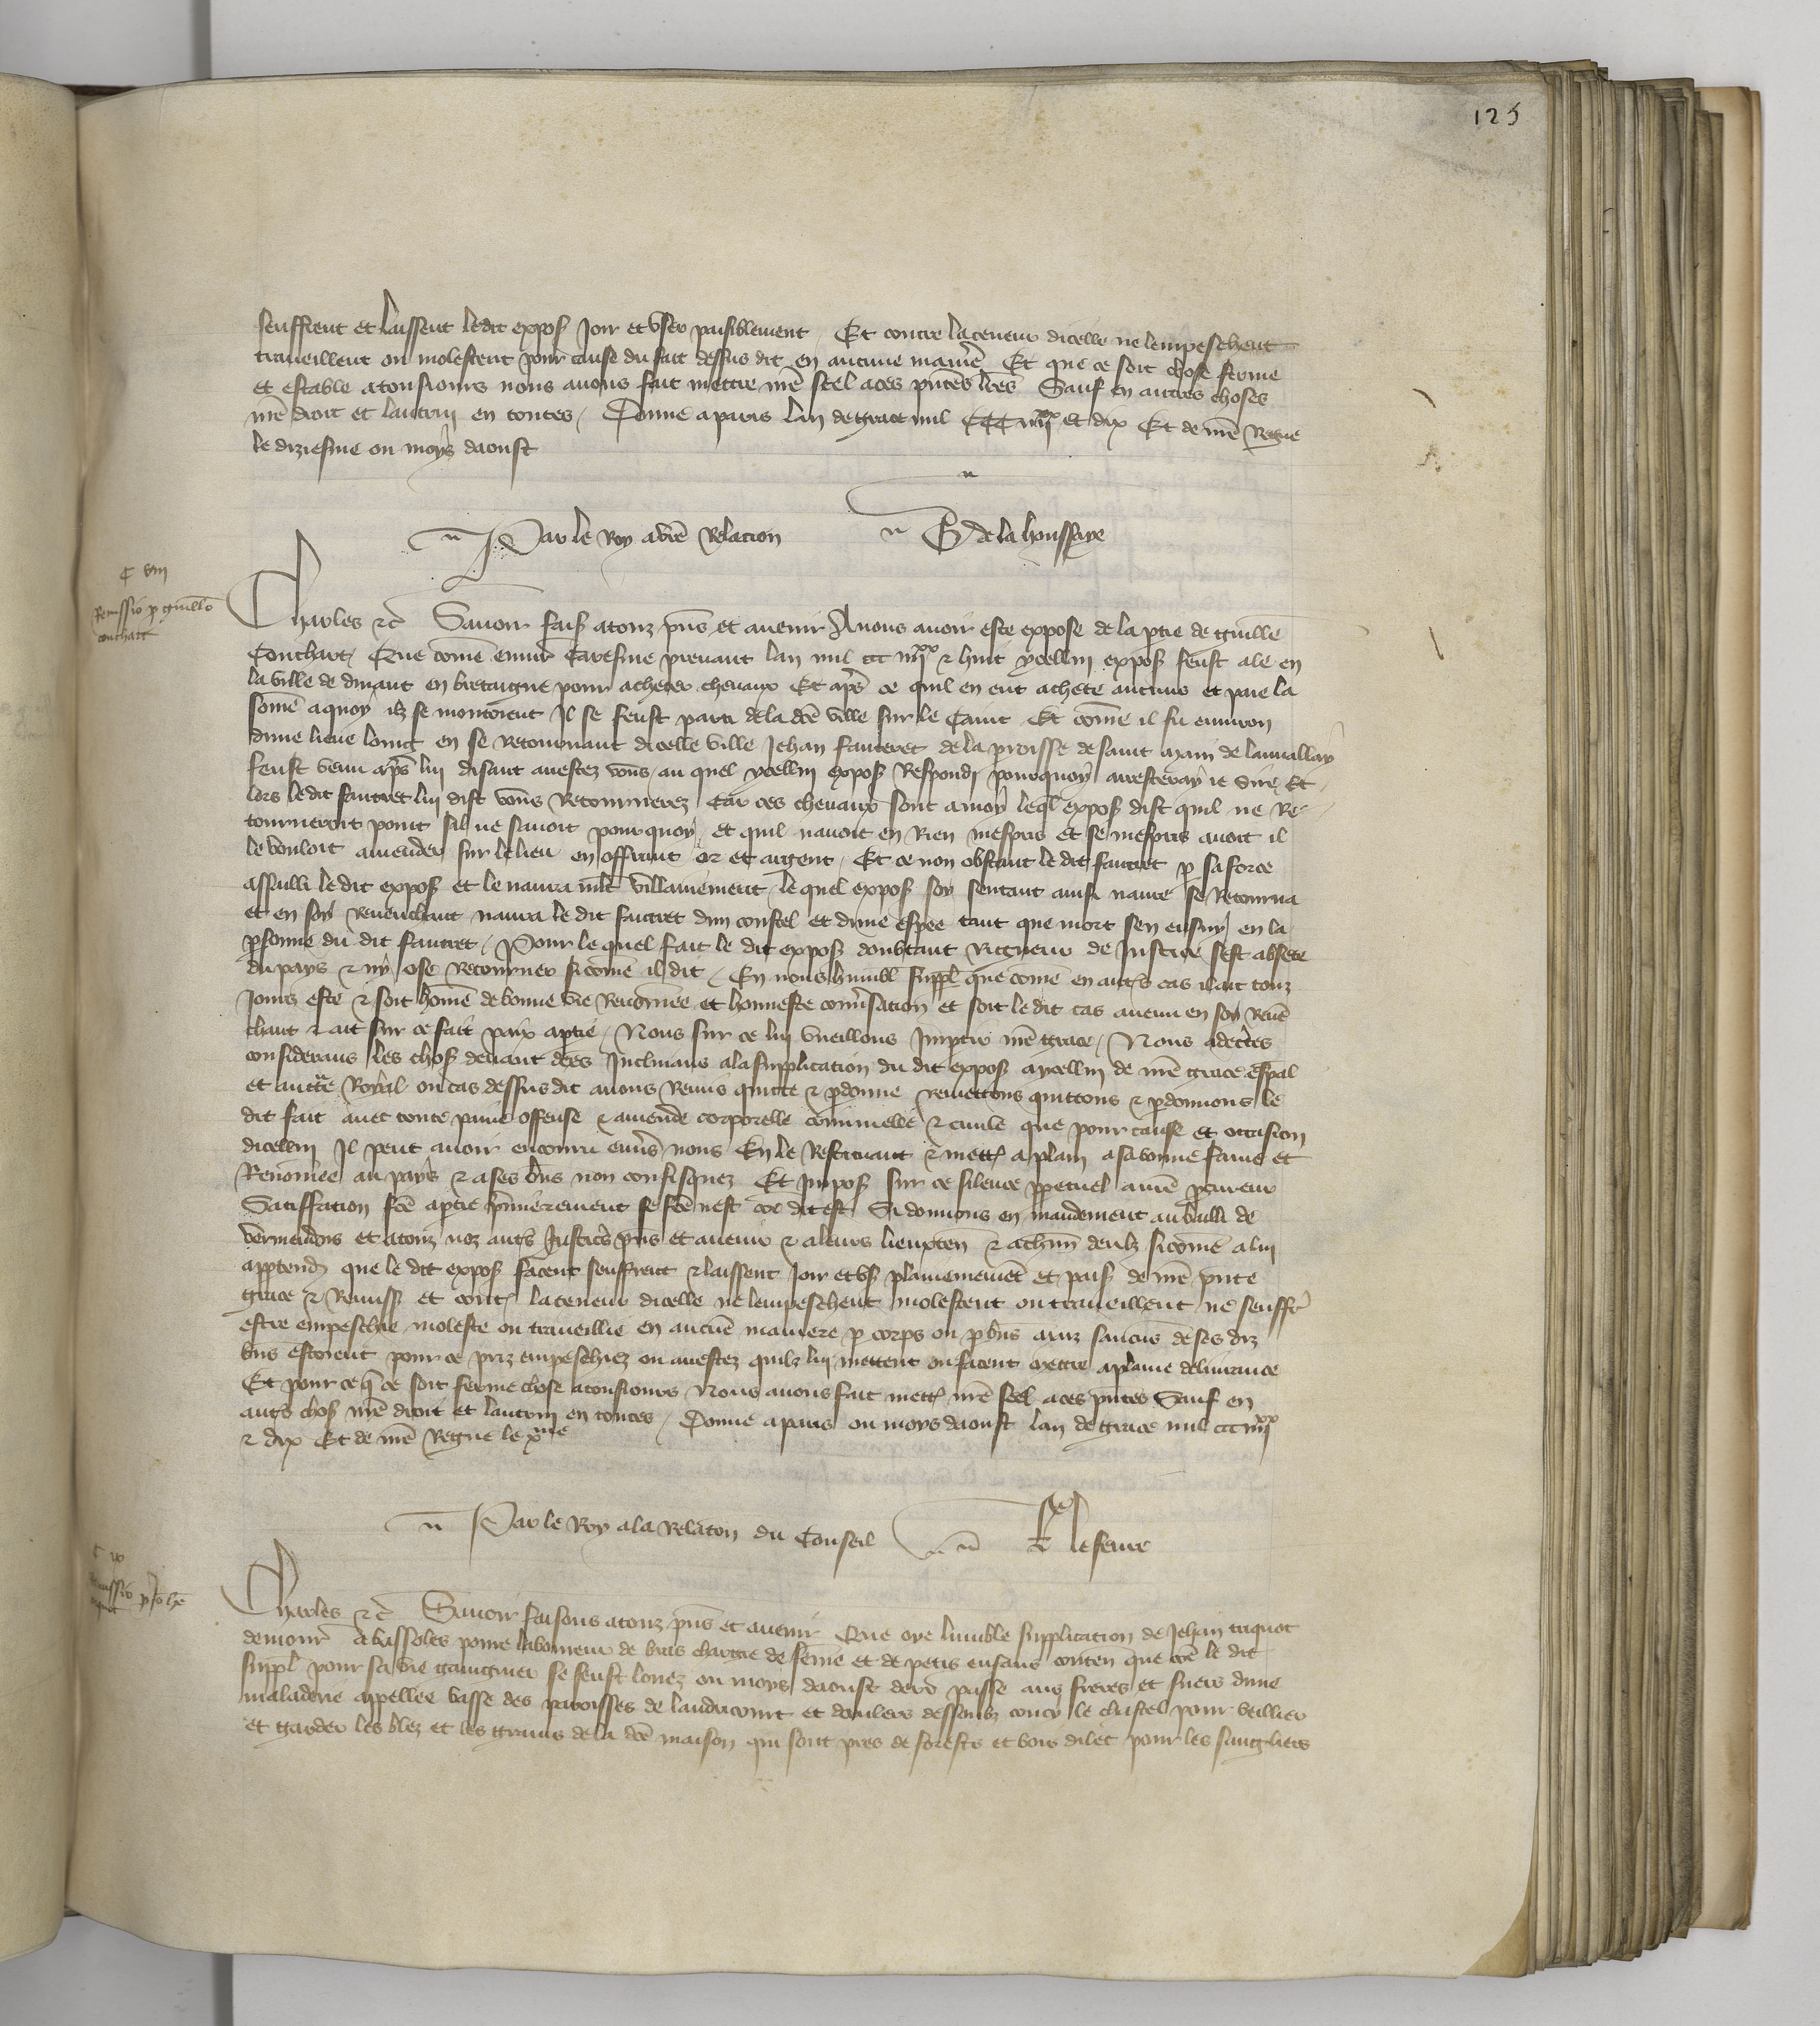 125
seuffrent et laissent ledit expos joir et user paisiblement Et contre la teneur dicelle ne lempeschent
traveillent ou molestent pour cause du fait dessus dit en aucune maniē Et que ce soit chose ferme
et estable a tousiours nous avons fait mettre nrē seel a ces pntēs lrēs Sauf en autres choses
nrē droit et lautruy en toutes / Donne a paris lan de grace mil CCC iiijxx et dix Et de nrē Regne
le diziesme ou moys daoust
Par le Roy a vrē Relacion G de la houssaye
C viij
Remissio p guillo
conchart
Charles etc̄ Savoir fais a touz pns̄ et avenir A nous avoir este expose de la ptie de guillē
Conchart Que comē environ Caresme prenant lan mil ccc iiijxx et huit ycellui expos feust ale en
la ville de dinant en bretaigne pour acheter chevaux Et apš ce quil en eut achete aucuns et paie la
somē a quoy ilz se montoient Il se feust parti de la dcē ville sur le tairt Et comē il fu environ
dune lieue loing en se Retournant dicelle ville Jehan fauteret de la proisse de saint main de lanvallay
feust venu apš lui disant arrestez vous / au quel ycellui expos Respondi pourquoy arresteray ie Sire Et
lors ledit fautret lui dist vous Retournerez Car ces chevaux sont a moy leql expos dist quil ne Re
tourneroit point sil ne savoit pourquoy / et quil navoit en Rien mespris et se mespris avoit il
le vouloit amender sur le lieu en offrant or et argent / Et ce non obstant le dit fautret p sa force
assailli le dit expos et le navra mlt villainement / le quel expos soy sentant ainsi navre se Retourna
et en soy Revenchant navra le dit fautret dun coustel et dune espee tant que mort sen ensuy en la
psonne du dit fautret / Pour le quel fait le dit expos doubtant Rigueur de Justice sest absēte
du pays et ny ose Retourner sicomē il dit / En nous humbl suppl que comē en autš cas il ait touz
Jours este et soit homē de bonne vie Renōmee et honneste conūsation et soit le dit cas avenu en soy Revē
chant et ait sur ce fait paix a ptie / Nous sur ce lui vueillons Impartir nrē grace / Nous adctēs
considerans les chos devant dcēs Inclinans a la supplication du dit expos a ycellui de nrē grace espāl
et auctte Royal ou cas dessus dit avons Remis quitte et pdonne remettons quittons et pdonnons le
dit fait avec toute paine offense et amende corporelle criminelle et civile que pour cause et occasion
dicellui Il peut avoir encouru envs nous En le Restituant et mettr a plain a sa bonne fame et
Renōmee au pays et a ses bns non confisquez Et impos sur ce silence ppetuel a nrē pcureur
Satiffacion fcē a ptie pmierement se fcē nest cōe dit est Si donnons en mandement au bailli de
vermendois et a touz noz autš Justiciš pns̄ et avenir et a leurs lieuxten et a chun deulx sicomē a lui
apptendr que le dit expos facent seuffrent et laissent joir et us plainemenēt et pais de nrē pnte
grace et Remiss et contr la teneur dicelle ne lempeschent molestent ou traveillent ne seuffr
estre empeschie moleste ou traveillie en aucune maniere p corps ou p bns ainz saucūs de ses diz
bns estoient pour ce priz empeschiez ou arrestez quilz lui mettent ou facent mettre a plaine delivrance
Et pour ce q̄ ce soit ferme chose a tousiours Nous avons fait mettr nrē seel a ces pntes Sauf en
autš chos nrē droit et lautrui en toutes / Donne a paris ou moys daoust lan de grace mil ccc iiijxx
et dix Et de nrē Regne le xme
Par le Roy a la Relaton du Conseil Lefevre
Charles etc̄ Savoir faisons a touz pns̄ et avenir Que oye lumble supplication de Jehan triquot
demour a bassoles povre laboureur de bras chargie de femē et de petis enfans conten que cōe le dit
suppl pour sa vie gaingnier se feust louez ou moys daoust derr passe aus freres et suers dune
maladerie appellee basse des parroisses de landricourt et daulers dessoubz coucy le chastel pour veillier
et garder les blez et les grains de la dcē maison qui sont pres de forests et bois dilec pour les sangliers